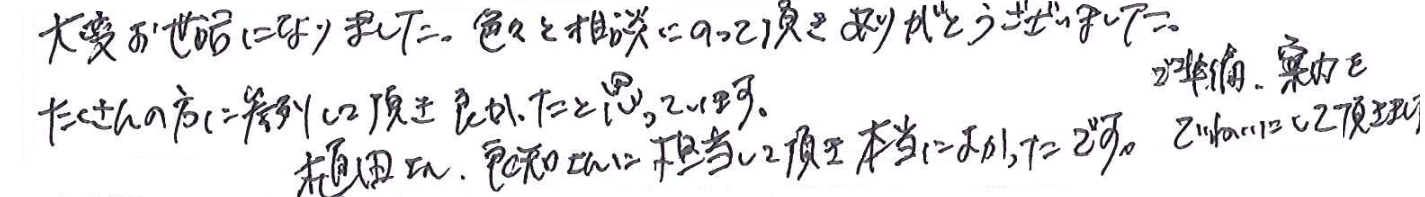 大変お世話になりました。色々と相談にのって頂きありがとうございました。
たくさんの方に参列して頂き良かったと思っています。
ご準備、案内を
ていねいにして頂きまし
植田さん、 さんに担当して頂き本当によかったです。